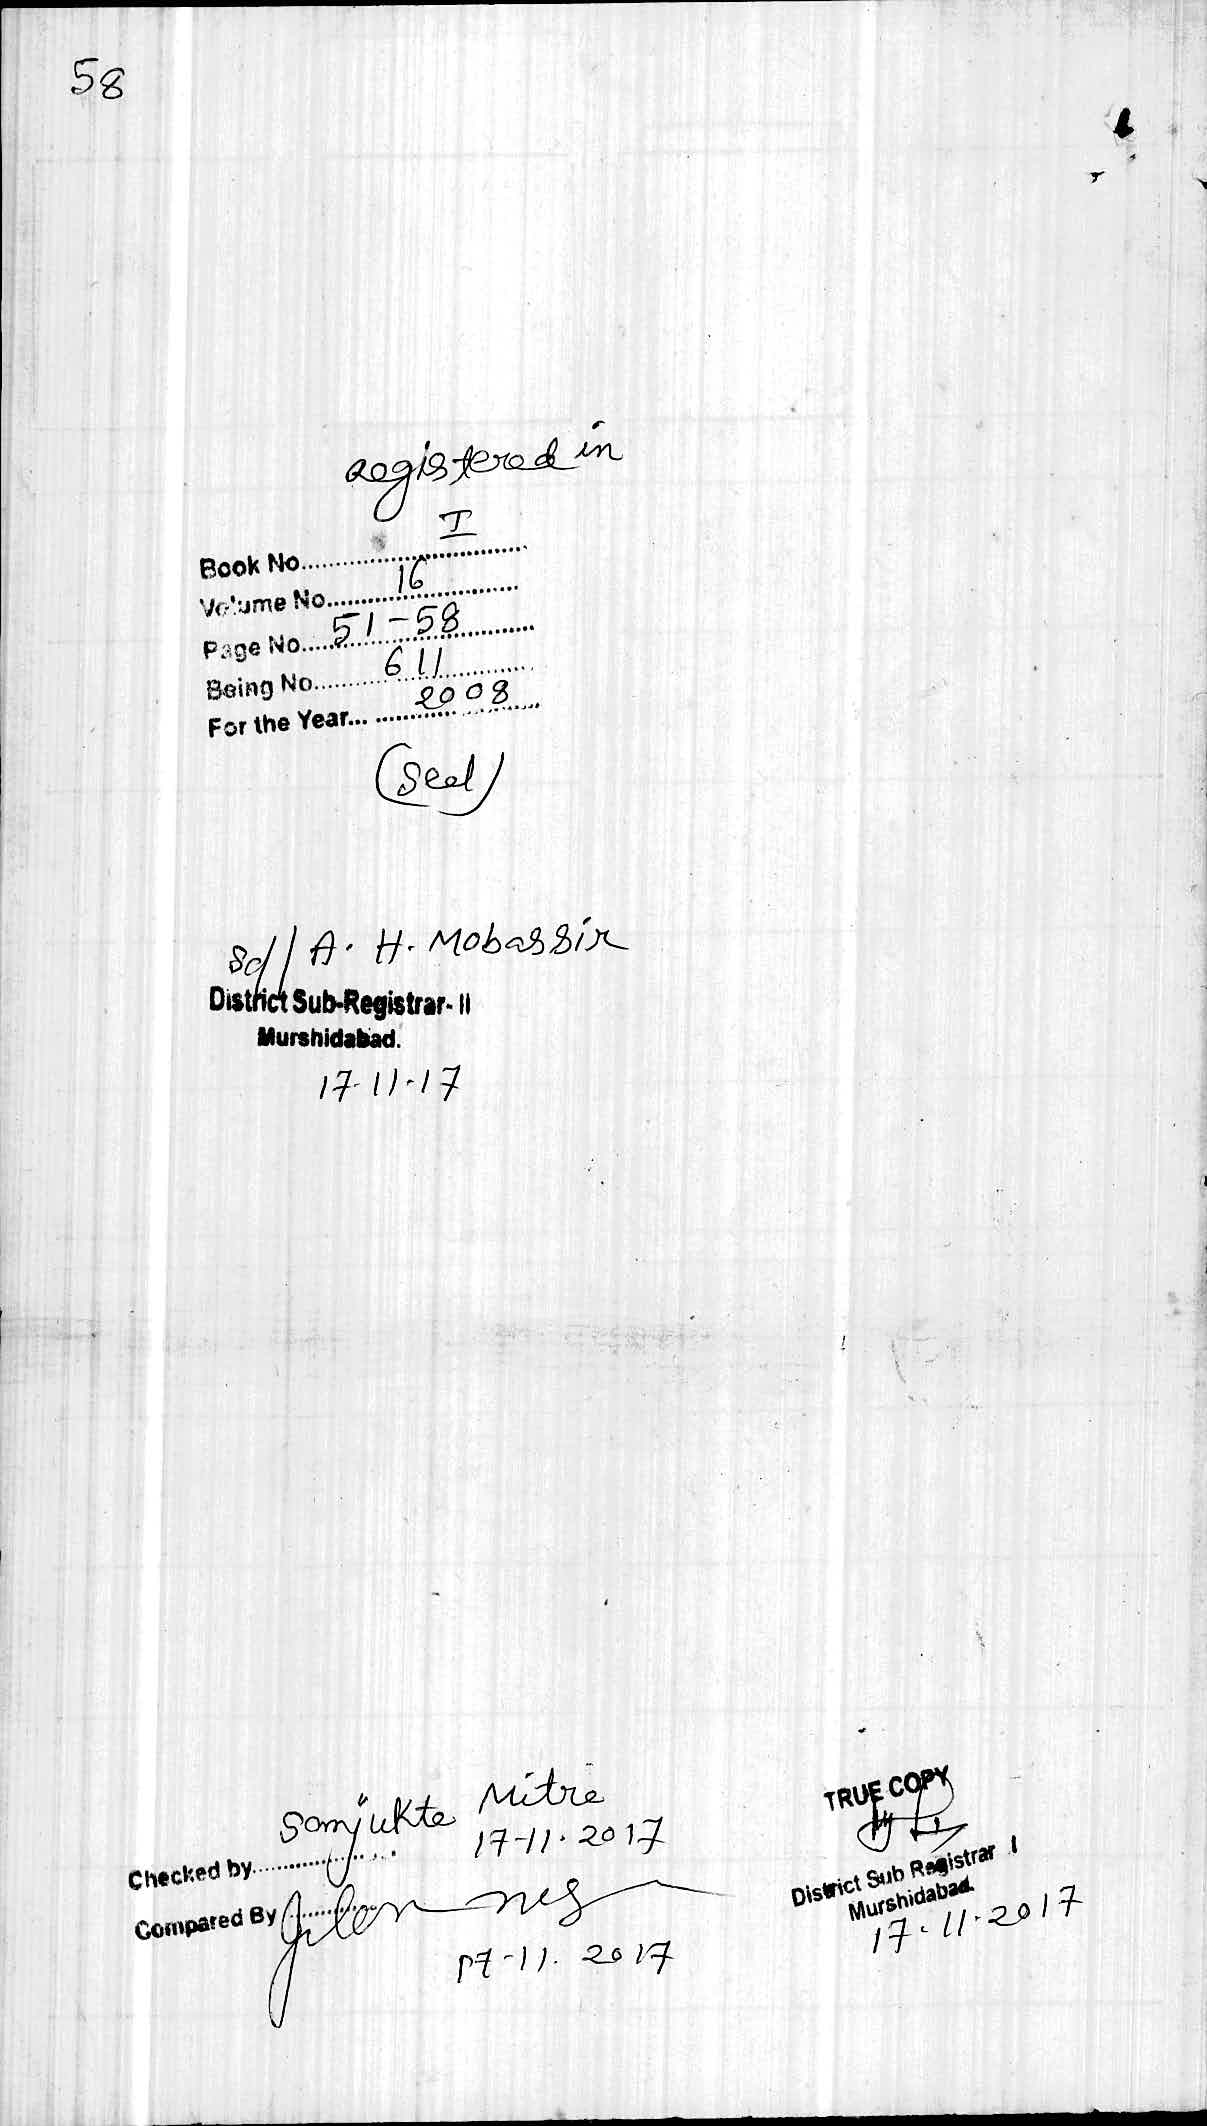 58
Registered in
Book No. I
Volume No. 16
Page No. 51-58
Being No. 611
For the Year... 2008
(Seal)
Sd/ A. H. Mobassir
District Sub-Registrar- II
Murshidabad.
17.11.17
Sanjukta Mitra
17-11.2017
Checked by
Compared By
17-11.2017
TRUE COPY
District Sub Registrar I
Murshidabad.
17.11.2017